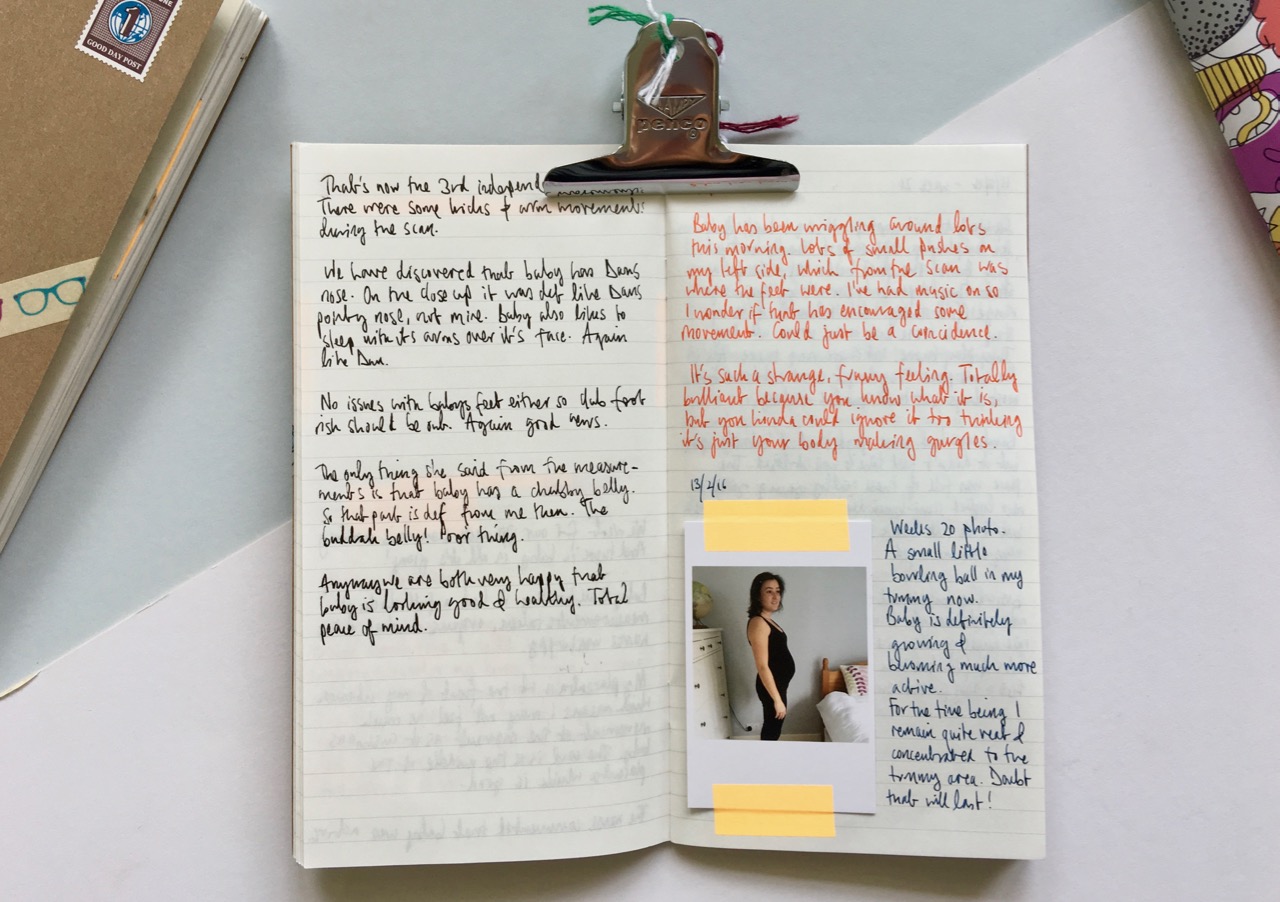 1
GOOD DAY POST
penco
That's now the 3rd independ
There were some kicks & arm movements
during the scan.
We have discovered that baby has Dans
nose. On the close up it was def like Dans
pointy nose, not mine. Baby also likes to
sleep with it's arms over it's face. Again
like Dan.
No issues with babys feet either so club foot
risk should be out. Again good news.
The only thing she said from the measure-
ments is that baby has a chubby belly.
So that part is def from me then. The
buddah belly! Poor thing.
Anyway we are both very happy that
baby is looking good & healthy. Total
peace of mind.
Baby has been wriggling around lots
this morning. Lots of small pushes on
my left side, which from the scan was
where the feet were. I've had music on so
I wonder if that has encouraged some
movement. Could just be a coincidence.
It's such a strange, funny feeling. Totally
brilliant because you know what it is,
but you kinda could ignore it too thinking
it's just your body making gurgles.
13/2/16
Weeks 20 photo.
A small little
bowling ball in my
tummy now.
Baby is definitely
growing &
becoming much more
active.
For the time being I
remain quite neat &
concentrated to the
tummy area. Doubt
that will last!